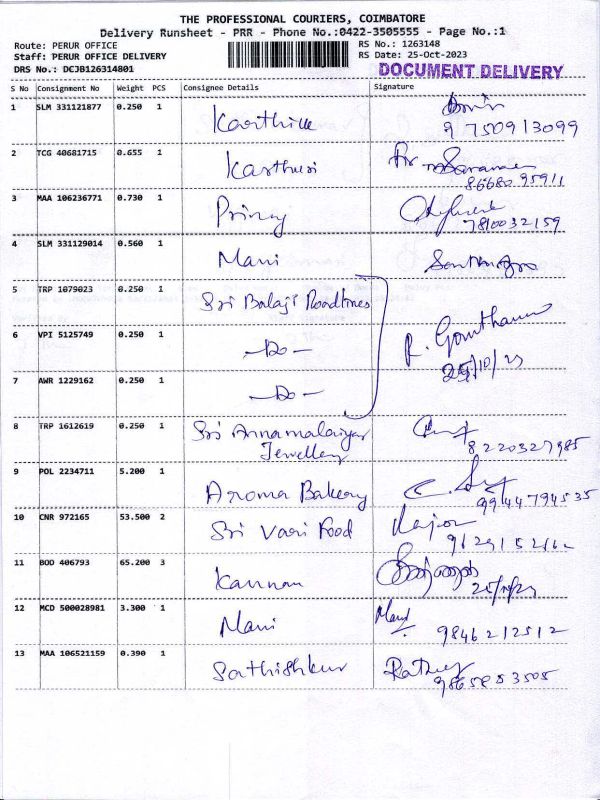 THE PROFESSIONAL COURIERS, COIMBATORE
Delivery Runsheet - PRR - Phone No.:0422-3505555 - Page No.:1
Route: PERUR OFFICE RS No.: 1263148
Staff: PERUR OFFICE DELIVERY RS Date: 25-Oct-2023
DRS No.: DCJB126314801 DOCUMENT DELIVERY
S No Consignment No Weight PCS Consignee Details Signature
1 SLM 331121877 0.250 1 Karthik
9750913099
2 TCG 40681715 0.655 1 Karthuri
86680 95911
3 MAA 106236771 0.730 1
7810032159
4 SLM 331129014 0.560 1 Mani
5 TRP 1079023 0.250 1 Sri Balaji Roadlines
6 VPI 5125749 0.250 1 -Do- R. Gowtham
25/10/23
7 AWR 1229162 0.250 1 -Do-
8 TRP 1612619 0.250 1 Sri Annamalaiyar
Jewellery 8220327985
9 POL 2234711 5.200 1 Aroma Bakery
9944794535
10 CNR 972165 53.500 2 Sri Vari Food
11 BOD 406793 65.200 3 Kannan
12 MCD 500028981 3.300 1 Mani Mani
9846212512
13 MAA 106521159 0.390 1 Sathishkur